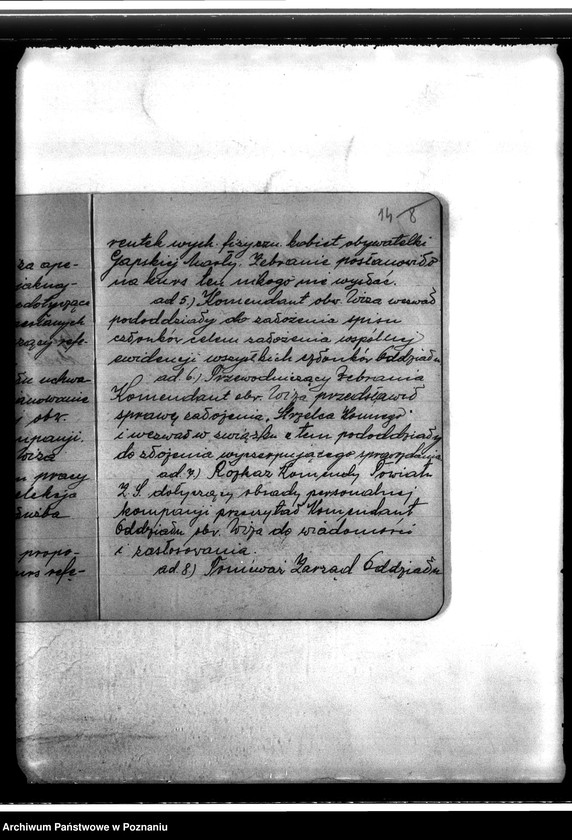 14 8
rentek wych. fizyczn. kobiet obywatelki
Gapskiej Marty. Zebranie postanowiło
na kurs ten nikogo nie wysłać.
ad 5.) Komendant obw. Wiza wezwał
pododdziały do założenia spisu
członków celem założenia wspólnej
ewidencji wszystkich członków Oddziału
ad. 6.) Przewodniczący Zebrania
Komendant obw. Wiza przedstawił
sprawę założenia "Strzelca Konnego"
i wezwał w związku z tem pododdziały
do złożenia wyczerpującego sprawozdania
ad. 7.) Rozkaz Komendy Powiatu
Z. S. dotyczący obsady personalnej
kompanji przeczytał Komendant
Oddziału obw. Wiza do wiadomości
i zastosowania.
ad. 8.) Ponieważ Zarząd Oddziału
za ape-
jaknaj-
dotyczące
zesłanych
refe-
uchwa-
i obw.
mpanji.
Wiza
pracy
służba
propo-
kurs refe-
Archiwum Państwowe w Poznaniu